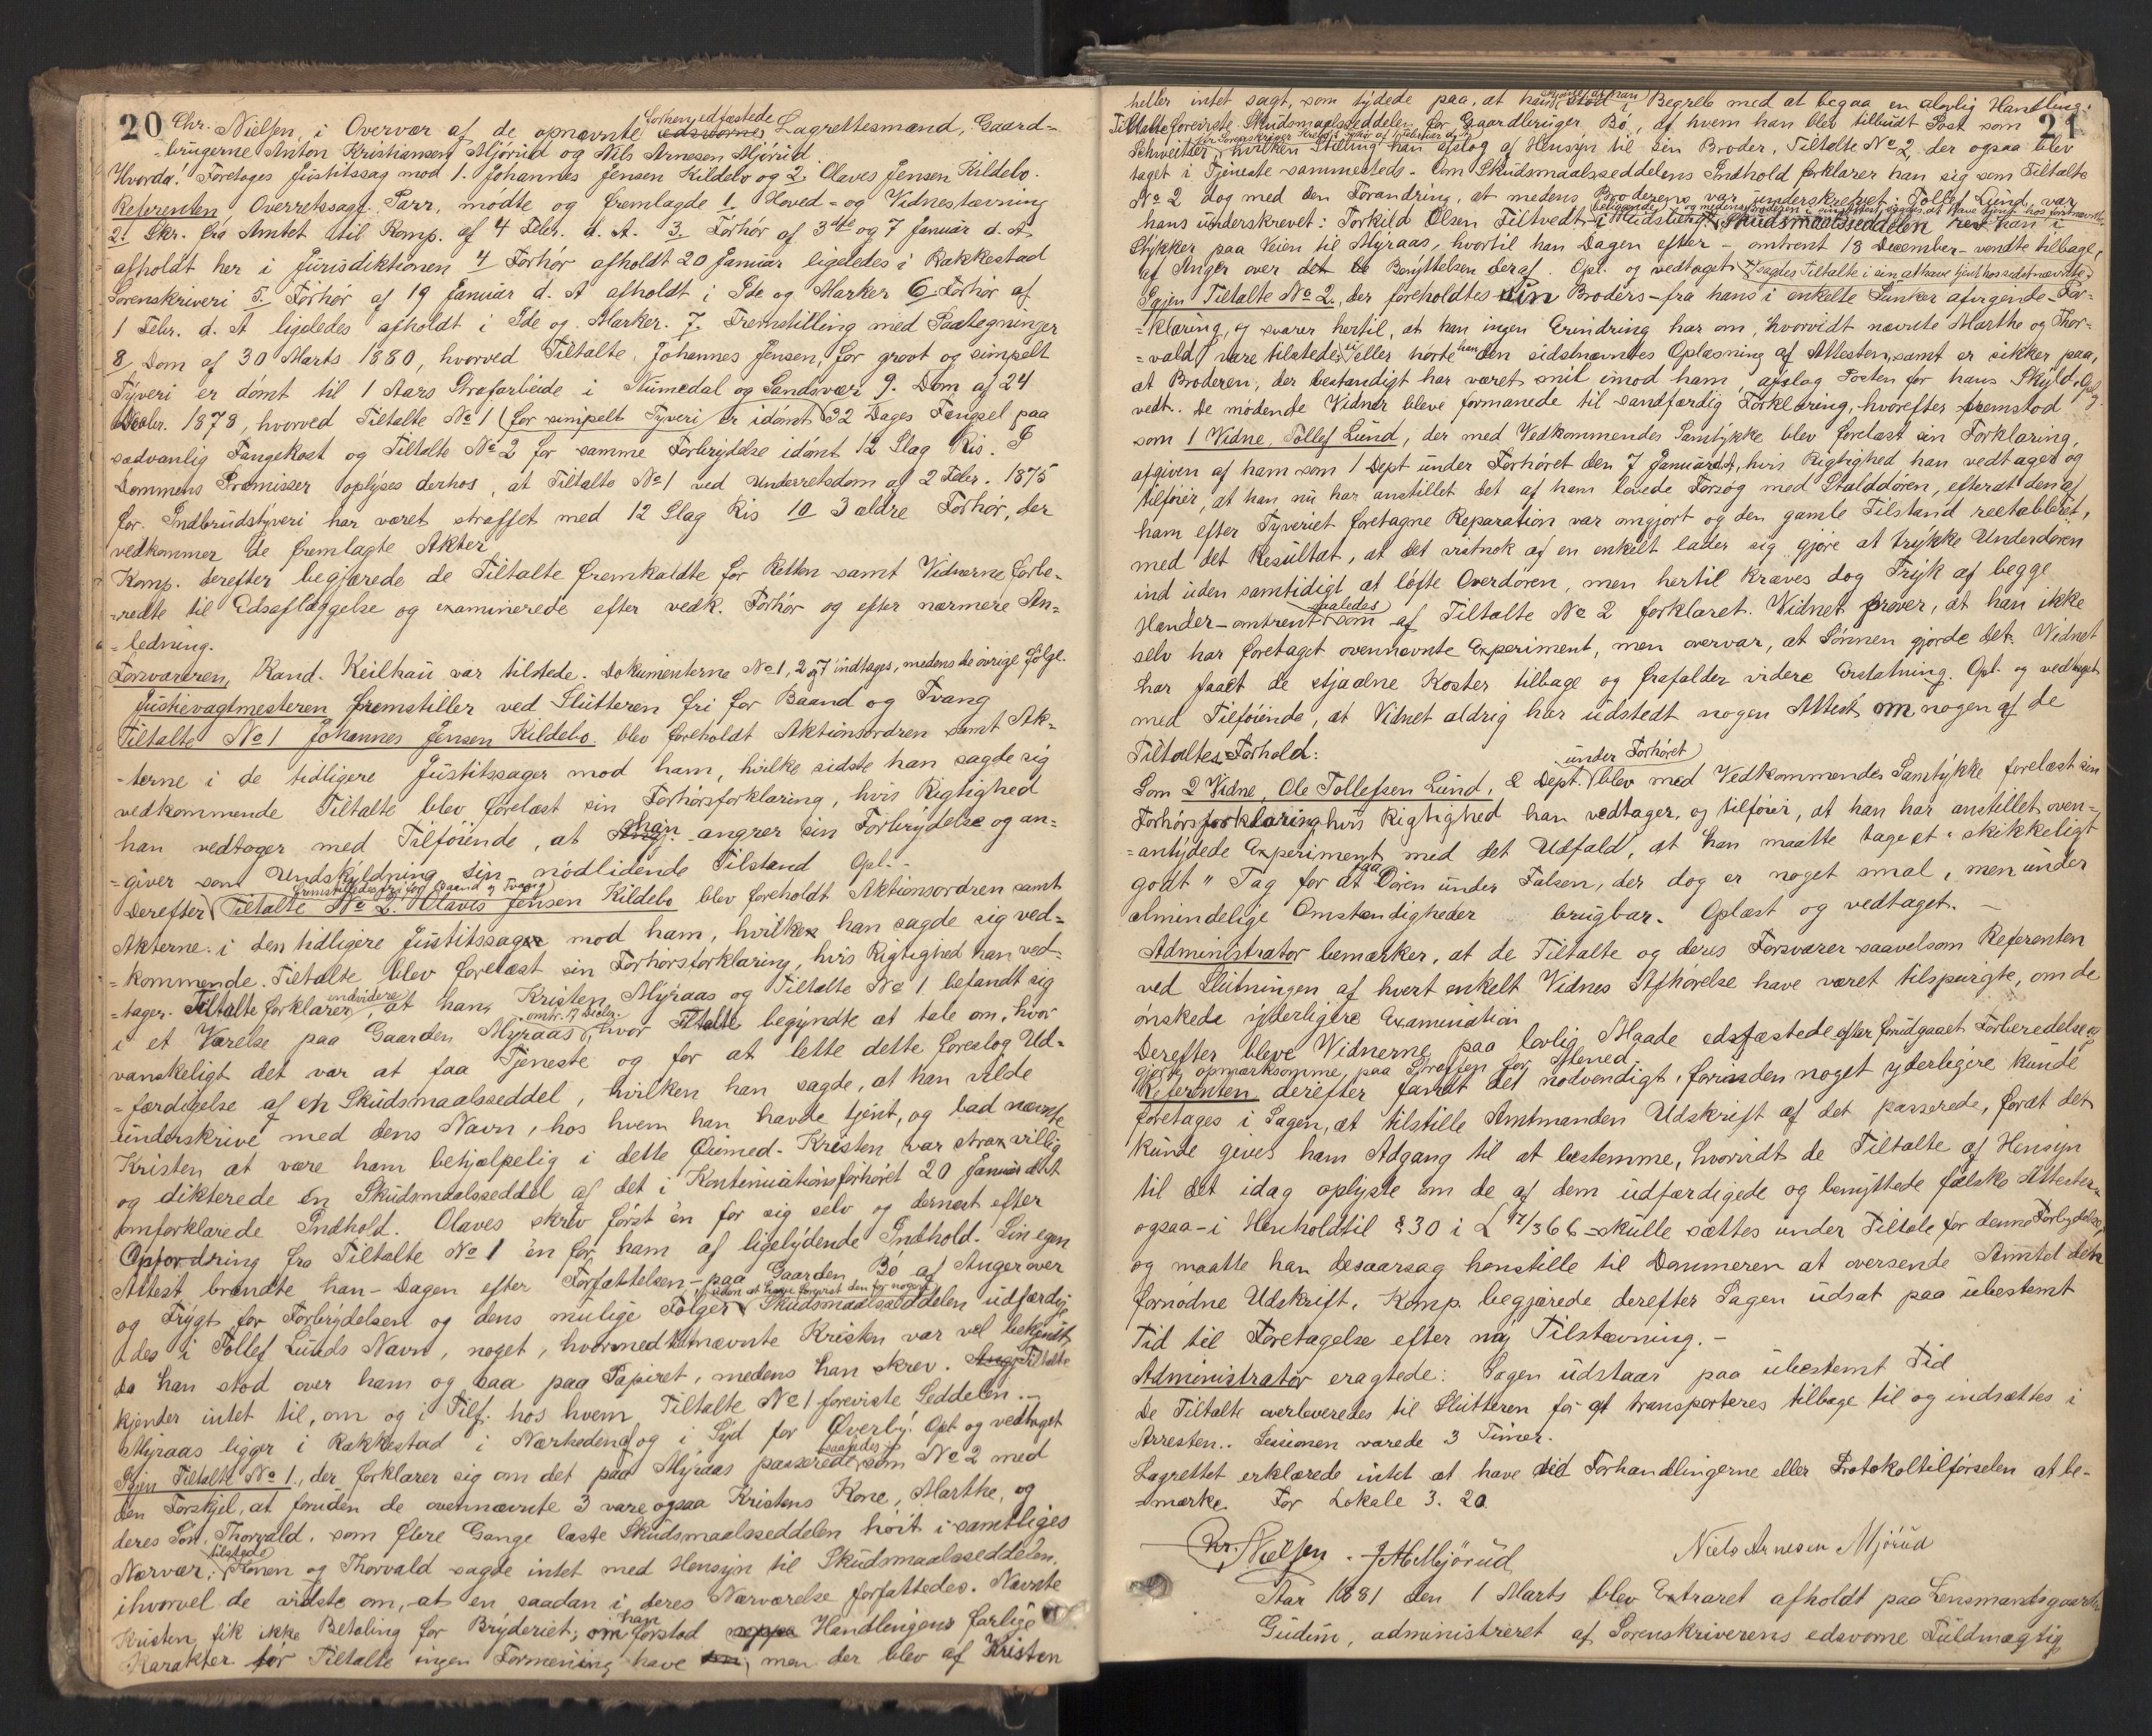 20
Chr. Nielsen, i Overvær af de opnævnte forhen edfæstede Lagrettesmænd, Gaard=
=brugerne Anton Kristiansen Mjörud og Nils Arnesen Mjörud.
Hvorda! Foretoges Justitssag mod 1. Johannes Jensen Kildebo og 2. Olaves Jensen Kildebo.
Referenten, Overretssagf. Parr, mödte og fremlagde 1. Hoved- og Vidnestævning
2. Skr. fra Amtet til Komp. af 4 Febr. d. A. 3. Forhör af 3die og 7 Januar d. A.
afholdt her i Jurisdiktionen 4 Forhör afholdt 20 Januar ligeledes i Rakkestad
Sorenskriveri 5. Forhör af 19 Januar d. A afholdt i Ide og Marker 6. Forhör af
1 Febr. d. A ligeledes afholdt i Ide og Marker. 7. Fremstilling med Paategninger
8 Dom af 30 Marts 1880, hvorved Tiltalte, Johannes Jensen, for grovt og simpelt
Tyveri er dömt til 1 Aars Strafarbeide i Numedal og Sandsvær 9. Dom af 24
Decbr. 1878, hvorved Tiltalte No 1 (for simpelt Tyveri) er idömt 32 Dages Fængsel paa
sædvanlig Fangekost og Tiltalte No 2 for samme Forbrydelse idömt 12 Slag Ris. I
Dommens Præmisser oplyses derhos, at Tiltalte No 1 ved Underretsdom af 2 Febr. 1875
for Indbrudstyveri har været straffet med 12 Slag Ris 10 3 ældre Forhör, der
vedkommer de fremlagte Akter
Komp. derefter begjærede de Tiltalte fremkaldte for Retten samt Vidnerne forbe=
=redte til Edsaflæggelse og examinerede efter vedk. Forhör og efter nærmere An=
=ledning.
Forsvareren, Kand. Keilhau var tilstede. Dokumenterne No 1, 2 og 7 indtages, medens de övrige fölge.
Justievagtmesteren fremstiller ved Slutteren fri for Baand og Tvang
Tiltalte No 1 Johannes Jensen Kildebo blev foreholdt Aktionsordren samt Ak=
=terne i de tidligere Justitssager mod ham, hvilke sidste han sagde sig
vedkommende Tiltalte blev forelæst sin Forhörsforklaring, hvis Rigtighed
han vedtager med Tilföiende, at han angrer sin Forbrydelse og an=
=giver som Undskyldning sin nödlidende Tilstand Opl.-
fremstilledes fri for Baand og Tvang
Derefter Tiltalte No 2. Olaves Jensen Kildebo blev foreholdt Aktionsordren samt
Akterne i den tidligere Justitssag mod ham, hvilke han sagde sig ved=
=kommende. Tiltalte blev forelæst sin Forhörsforklaring, hvis Rigtighed han ved=
=tager. Tiltalte forklarer endvidere, at han, Kristen Myraas og Tiltalte No 1 befandt sig
i et Værelse paa Gaarden Myraas, omtr. 17 Decbr. hvor Tiltalte begyndte at tale om, hvor
vanskeligt det var at faa Tjeneste og for at lette dette foreslog Ud=
=færdigelse af en Skudsmaalsseddel, hvilken han sagde, at han vilde
underskrive med dens Navn, hos hvem han havde tjent, og bad nævnte
Kristen at være ham behjælpelig i dette Öiemed. Kristen var strax villig
og dikterede en Skudsmaalsseddel af det i Kontinuationsforhöret 20 Januar d A
omforklarede Indhold. Olaves skrev först en for sig selv og dernæst efter
Opfordring fra Tiltalte No 1 en for ham af ligelydende Indhold. Sin egen
Attest brændte han - Dagen efter Forfattelsen - paa Gaarden Bö af Anger over
og Frygt for Forbrydelsen og dens mulige Fölger uden at have forevist den for nogen Skudsmaalsseddelen udfærdig
=des i Tollef Lunds Navn, noget, hvormed nævnte Kristen var vel bekjendt,
da han stod over ham og saa paa Papiret, medens han skrev. Tiltalte
kjender intet til, om og i Tilf. hos hvem Tiltalte No 1 foreviste Seddelen.-
Myraas ligger i Rakkestad i Nærheden og i Syd for Överby. Opl og vedtaget
Igjen Tiltalte No 1., der forklarer sig om det paa Myraas passerede saaledes som No 2 med
den Forskjel, at foruden de ovennævnte 3 vare ogsaa Kristens Kone, Marthe, og
deres Sön, Thorvald, som flere Gange læste Skudsmaalsseddelen höit i samtliges
Nærvær, tilstede Konen og Thorvald sagde intet med Hensyn til Skudsmaalsseddelen,
ihvorvel de vidste om, at en saadan i deres Nærværelse forfattedes. Nævnte
Kristen fik ikke Betaling for Bryderiet; om han forstod Handlingens farlige
Karakter tör Tiltalte ingen Formening have, men der blev af Kristen
21
heller intet sagt, som tydede paa, at han stod i Begreb med at begaa en ulovlig Handling.
Tiltalte foreviste Skudsmaalsseddelen for Gaardbruger Bö, af hvem han blev tilbudt Post som
Schweitser hvilken Stilling han afslog af Hensyn til sin Broder, Tiltalte No 2, der ogsaa blev
taget i Tjeneste sammesteds. Om Skudsmaalsseddelens Indhold forklarer han sig som Tiltalte
No 2 dog med den Forandring, at medens Broderens var underskrevet: Tollef Lund, var
hans underskrevet: Torkild Olsen Tiltvedt Skudsmaalsseddelen rev han i
Stykker paa Veien til Myraas, hvortil han Dagen efter - omtrent 18 December - vendte tilbage,
af Anger over Benyttelsen deraf. Opl. og vedtaget. sagdes Tiltalte i sin at have tjent hos sidstnævnte.
Igjen Tiltalte No 2., der foreholdtes sin Broders - fra hans i enkelte Punkter afvigende - For=
=klaring, og svarer hertil, at han ingen Erindring har om, hvorvidt nævnte Marthe og Thor=
=vald vare tilstede, ei eller hörte han den sidstnævntes Oplæsning af Attesten, samt er sikker paa,
at Broderen, der bestandigt har været snil imod ham, afslog Posten for hans Skyld. Opl. og
vedt. De mödende Vidner bleve formanede til sandfærdig Forklaring, hvorefter fremstod
som 1 Vidne, Tollef Lund, der med Vedkommendes Samtykke blev forelæst sin Forklaring,
afgiven af ham som 1 Dept under Forhöret den 7 Januar d A, hvis Rigtighed han vedtager og
tilföier, at han nu har anstillet det af ham lovede Forsög med Stalddören, efterat den af
ham efter Tyveriet foretagne Reparation var omgjort og den gamle Tilstand reetableret,
med det Resultat, at det vistnok af en enkelt lader sig gjöre at trykke Underdören
ind uden samtidigt at löfte Overdören, men hertil kræves dog Tryk af begge
Hænder - omtrent saaledes som af Tiltalte No 2 forklaret. Vidnet pröver, at han ikke
selv har foretaget ovennævnte Experiment, men overvar, at Sönnen gjorde det. Vidnet
har faaet de stjaalne Koster tilbage og frafalder videre Erstatning. Opl. og vedtaget
med Tilföiende, at Vidnet aldrig har udstedt nogen Attest om nogen af de
Tiltaltes Forhold:
Som 2 Vidne, Ole Tollefsen Lund, 2 Dept. under Forhöret blev med Vedkommendes Samtykke forelæst sin
Forhörsforklaring hvis Rigtighed han vedtager, og tilföier, at han har anstillet oven=
=antydede Experiment med det Udfald, at han maatte tage et "skikkeligt
godt" Tag for at faa Dören under Falsen, der dog er noget smal, men under
almindelige Omstændigheder brugbar. Oplæst og vedtaget. -
Administrator bemærker, at de Tiltalte og deres Forsvarer saavelsom Referenten
ved Slutningen af hvert enkelt Vidnes Afhörelse have været tilspurgte, om de
önskede yderligere Examination
Derefter bleve Vidnerne paa lovlig Maade edsfæstede efter forudgaaet Forberedelse og
gjorte opmærksomme paa Straffen for Mened.
Referenten derefter fandt det nödvendigt, forinden noget yderligere kunde
foretages i Sagen, at tilstille Amtmanden Udskrift af det passerede, forat det
kunde gives ham Adgang til at bestemme, hvorvidt de Tiltalte af Hensyn
til det idag oplyste om de af dem udfærdigede og benyttede falske Attester
ogsaa - i Henhold til § 30 i L 12/3 66 - skulle sættes under Tiltale for denne Forbrydelse,
og maatte han desaarsag henstille til Dommeren at oversende Amtet den
fornödne Udskrift. Komp. begjærede derefter Sagen udsat paa ubestemt
Tid til Foretagelse efter ny Tilstævning. -
Administrator eragtede: Sagen udstaar paa ubestemt Tid
De Tiltalte overleveredes til Slutteren for at transporteres tilbage til og indsættes i
Arresten.. Sessionen varede 3 Timer.
Lagrettet erklærede intet at have ved Forhandlingerne eller Protokoltilförselen at be-
=mærke. For Lokale 3. 20
Chr. Nielsen. A Mjörud Niels Arnesen Mjörud
Aar 1881 den 1 Marts blev Extraret afholdt paa Lensmandsgaarden
Gudim, administreret af Sorenskriverens edsvorne Fuldmægtig